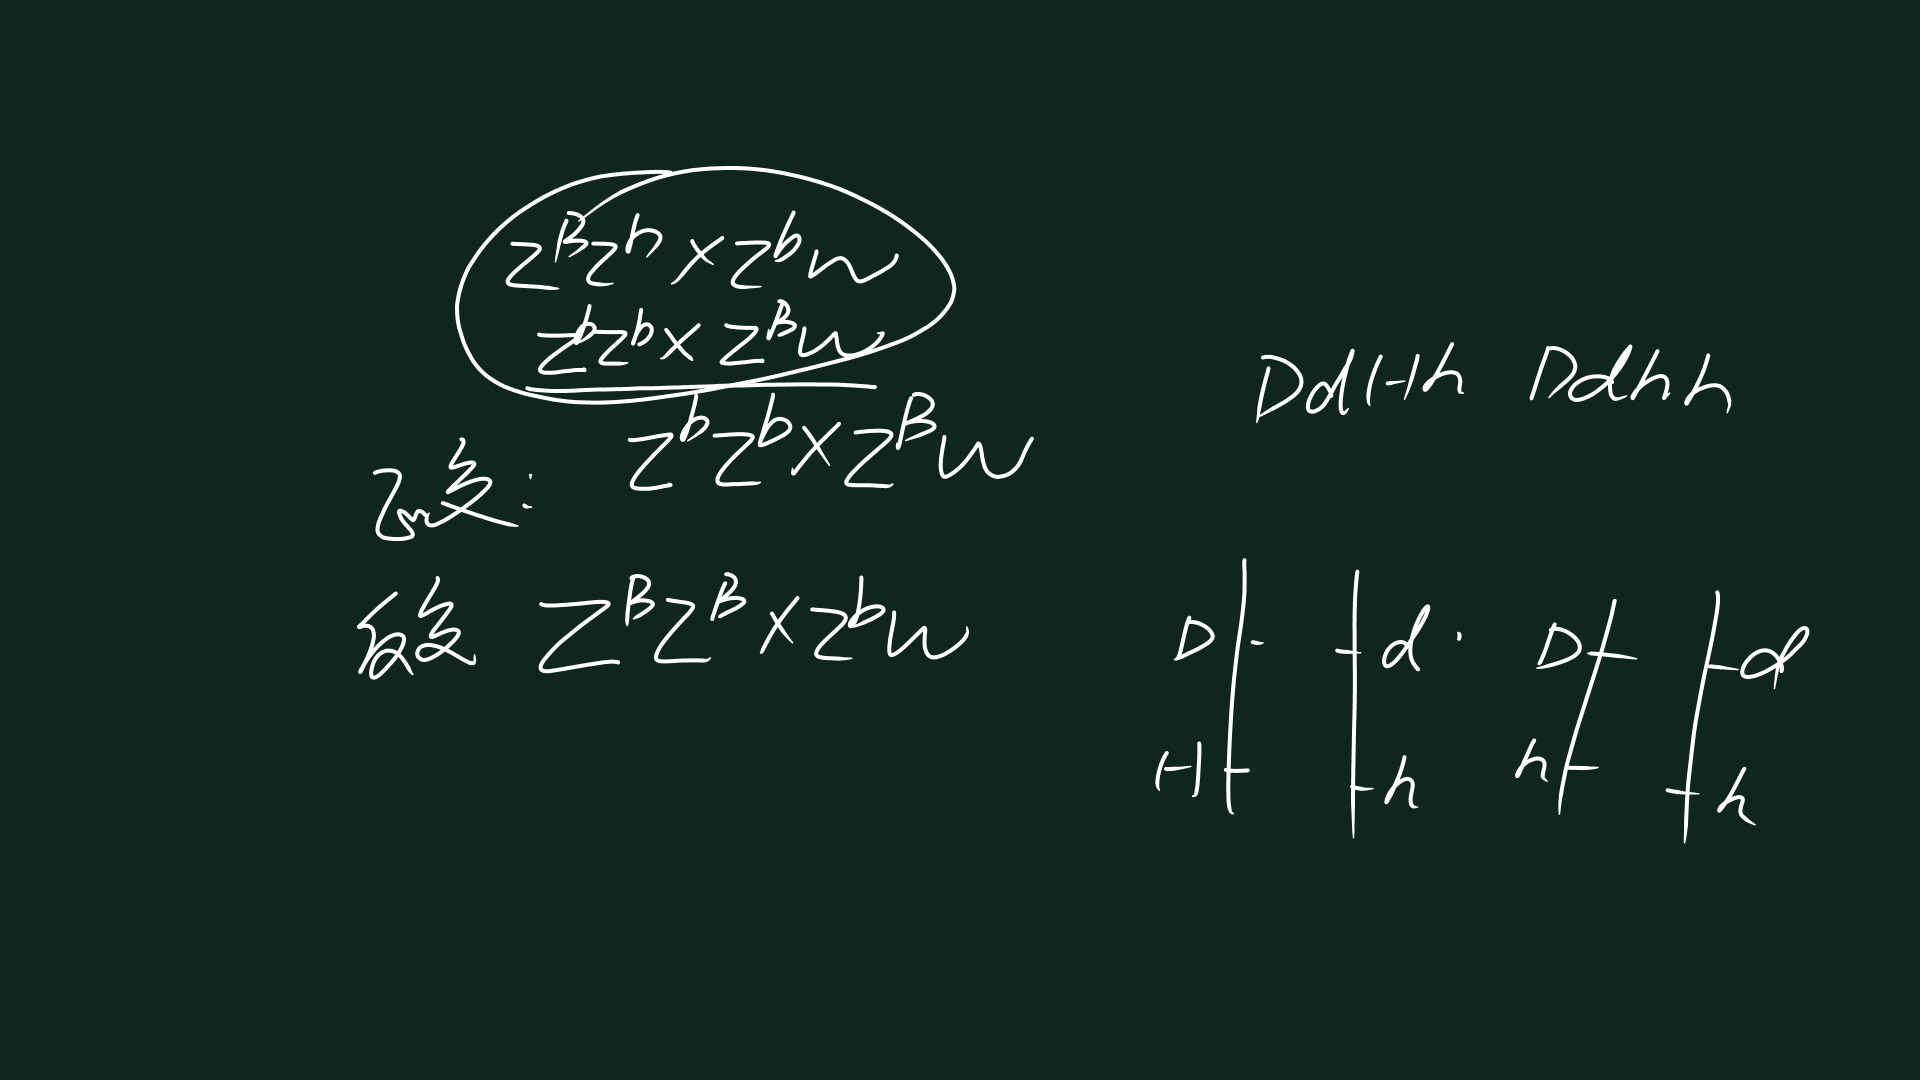 Z^B Z^b × Z^b W
Z^b Z^b × Z^B W
正交: Z^b Z^b × Z^B W
反交 Z^B Z^B × Z^b W
DdHh Ddhh
D d D d
H h h h